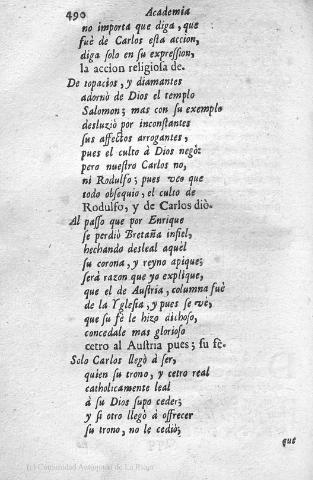 490 Academia
no importa que diga, que
fuè de Carlos eſta accion,
diga ſolo en ſu expreſſion,
la accion religioſa de.
De topacios, y diamantes
adornò de Dios el templo
Salomon; mas con ſu exemplo
desluziò por inconſtantes
ſus affectos arrogantes,
pues el culto à Dios negò:
pero nueſtro Carlos no,
ni Rodulfo; pues veo que
todo obſequio, el culto de
Rodulfo, y de Carlos diò.
Al paſſo que por Enrique
ſe perdiò Bretaña infiel,
hechando desleal aquèl
ſu corona, y reyno apique;
ſerà razon que yo explique,
que el de Auſtria, columna fuè
de la Ygleſia, y pues ſe vè,
que ſu fè le hizo dichoſo,
concedale mas glorioſo
cetro al Auſtria pues; ſu fè.
Solo Carlos llegò à ſer,
quien ſu trono, y cetro real
catholicamente leal
à ſu Dios ſupo ceder;
y ſi otro llegò à offrecer
ſu trono, no le cediò;
que
(c) Comunidad Autónoma de La Rioja